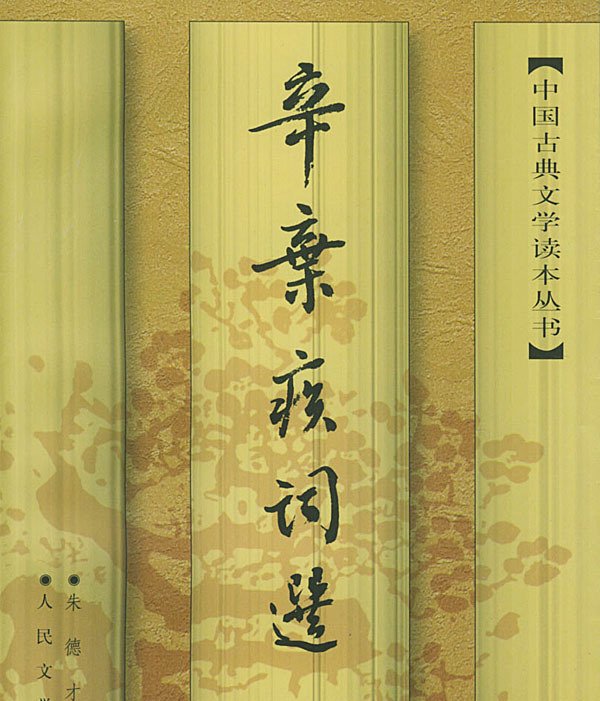 【中国古典文学读本丛书】
辛棄疾词選
◉朱德才
◉人民文学